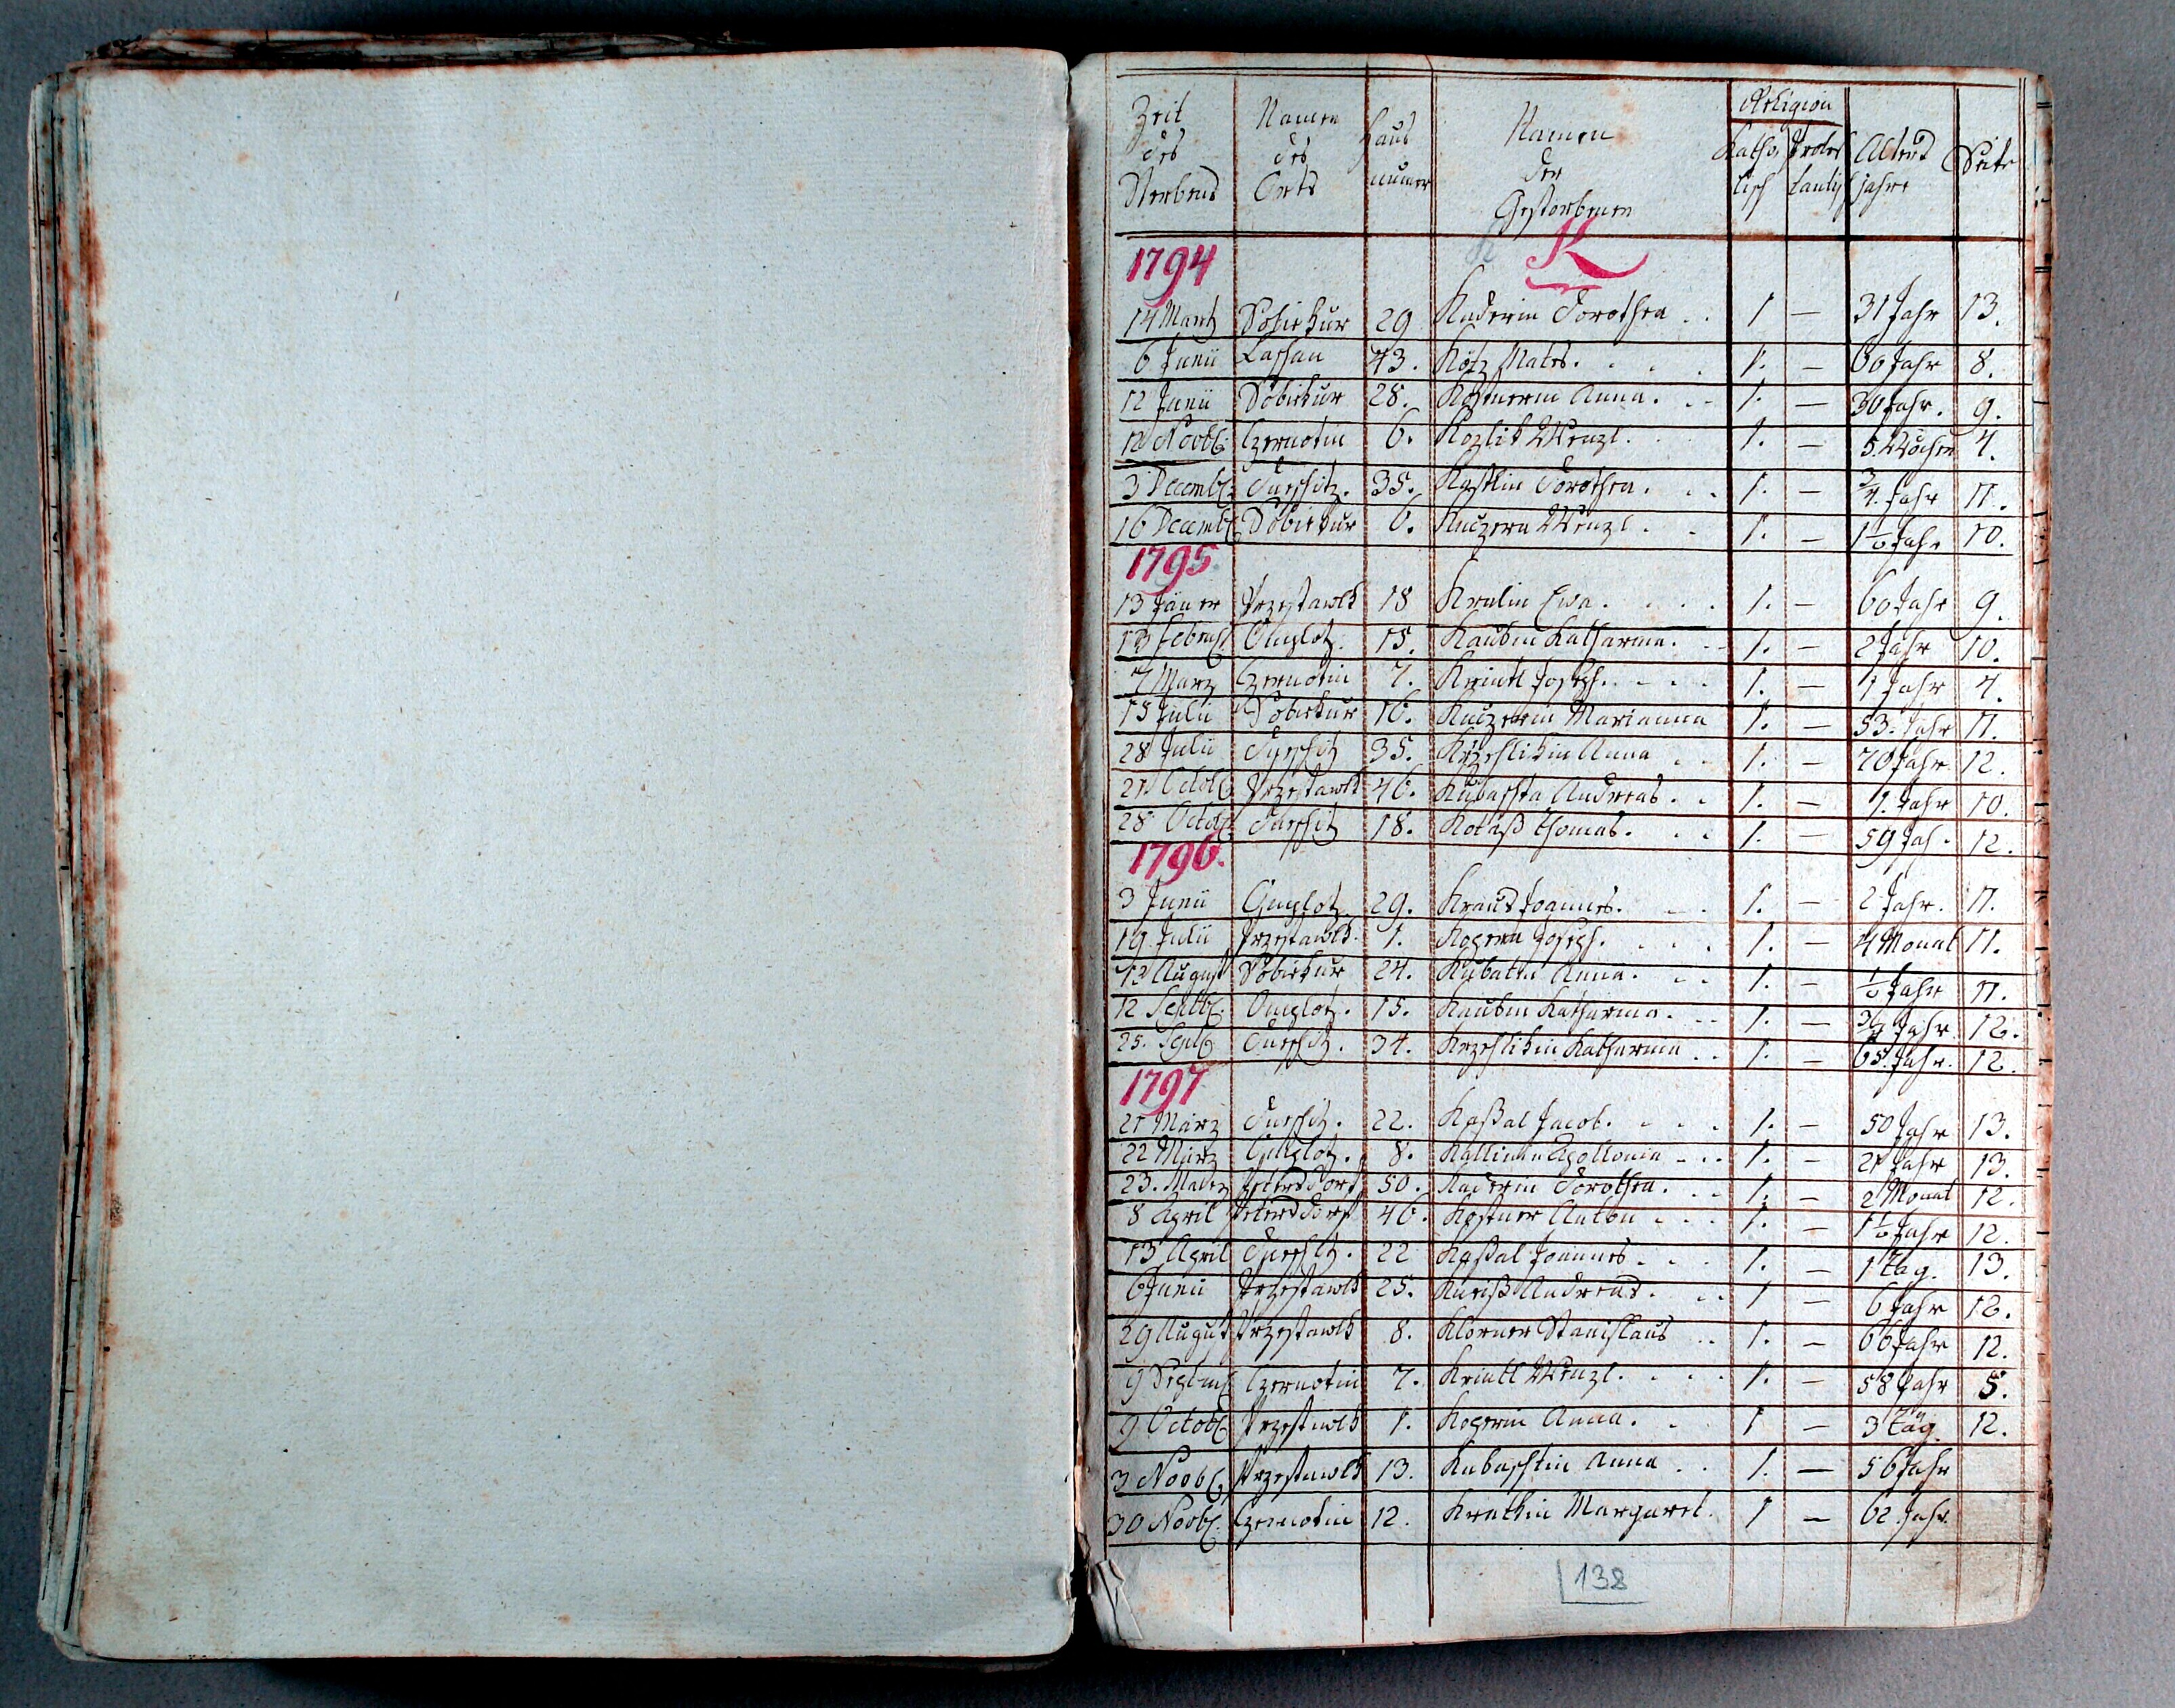 Zeit des Sterbens | Namen des Orts | Haus numer | Namen der Gestorbenen | Religion Katholisch | Protestantisch | Alters jahre | Seite
1794 K
14 Martz Dobiekur 29 Kuderin Dorothea . . 1 — 31 Jahr 13.
6 Junii Lassau 43. Kötz Mates. . . . . 1. — 60 Jahr 8.
12 Junii Dobiekur 28. Köstnerin Anna. . . 1. — 30 Jahr. 9.
12 Novbr. Czernotin 6. Kozlik Wenzl. . 1. — 5 Wochen 4.
3 Decembr. 35. Dorothea. . . 1. — 3/4 Jahr 11.
16 Decembr. Dobiekur 6. Kuczera Wenzl . . 1. — 1 1/2 Jahr 10.
1795.
13 Jäner Przestawlk 18 Kralin Ewa. . . . 1. — 60 Jahr 9.
13 Febru. 15. Kaubin Katharina. . . 1. — 2 Jahr 10.
7 Marz Czernotin 7. Kreitl Joseph. . . . 1. — 1 Jahr 4.
15 Julii Dobiekur 16. Kuczerin Marianna 1. — 53. Jahr 11.
28 Julii 35. Krzeslikin Anna . . 1. — 70 Jahr 12.
21 Octobr. Przestawlk 46. Andreas. . 1. — 1. Jahr 10.
28 Octobr. 18. Kotaß Thomas. . . 1. — 59 Jah. 12.
1796.
3 Junii 29. Kraus Joannes. . . 1. — 2 Jahr. 11.
19. Julii Przestawlk. 1. Kozera Joseph. . . . 1. — 4 Monat 11.
13 August Dobiekur 24. Kubatin Anna. . . 1. — 1/2 Jahr 11.
12 Septbr. 15. Kaubin Katharina. . . 1. — 3/4 Jahr. 12.
25. Septbr. 34. Krzeslikin Katharina . . 1. — 65. Jahr. 12.
1797
21 März 22. Kaßal Jacob. . . . . 1. — 50 Jahr 13.
22 März 8. Apollonia . . . 1. — 21 Jahr 13.
23. Petersdorf 50. Kaderin Dorothea. . . 1. — 2 Monat 12.
8 April Petersdorf 46. Köstner Anton . . . 1. — 1 1/2 Jahr 12.
13 April 22 Kaßal Joannes . . . 1. — 1 Tag. 13.
6 Junii Przestawlk 25. Andreas. . . 1 — 6 Jahr 12.
29 August Przestawlk 8. Klorner Stanislaus . . 1. — 66 Jahr 12.
9 Septmb. Czernotin 7. Kreitl Wenzl. . . . 1. — 58 Jahr 5.
9. Octobr. Przestawlk 1. Kozerin Anna. . 1 — 3 Täg. 12.
3 Novbr. Przestawlk 13. Kubaschtin Anna . . 1. — 56 Jahr
30 Novbr. Czernotin 12. Krathin Margaret. 1 — 62. Jahr
138